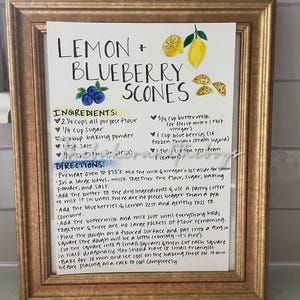 LEMON +
BLUEBERRY
SCONES
INGREDIENTS:
2 3/4 cups all purpose flour
1/4 cup sugar
baking powder
salt
3/4 cup buttermilk
vinegar)
1 cup blueberries (if
frozen
DIRECTIONS:
Preheat oven to 375°F. Mix the milk + vinegar + set aside
In a large bowl, whisk together the flour, sugar, baking
powder, and salt.
Add the butter to the dry ingredients + use a pastry cutter
to mix it in until there are no pieces bigger than a pea.
Add the blueberries + lemon zest and gently toss to
combine.
Add the buttermilk and mix just until everything holds
together + there are no large pockets of flour remaining.
Place the dough on a floured surface and pat into a
square (the dough will be a little crumbly - it's fine!)
Cut the square into 9 small squares then cut each square
in half diagonally. You should have 18 small triangles.
Bake for 18 min and let cool on the baking sheet for 10 min
before placing on a rack to cool completely.